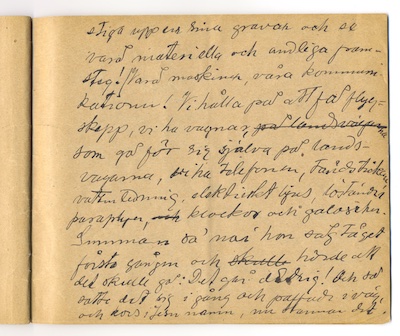 stiga uppur sina gravar och se
vårå materiella och andliga fram-
steg! Vårå maskiner, våra kommuni
kationer! Vi hålla på att få flyg-
skepp, vi ha vagnar, på landsvägarna
som gå för sig själva på lands-
vägarna, vi ha telefoner, tändstickor,
vattenledning, elektriskt ljus,
paraplyer, och klockor och galoscher.
sa' när hon såg tåget
första gången och skulle hörde att
det skulle gå: Det går aldrig! Och så
satte det sig i gång och puffade i väg,
och